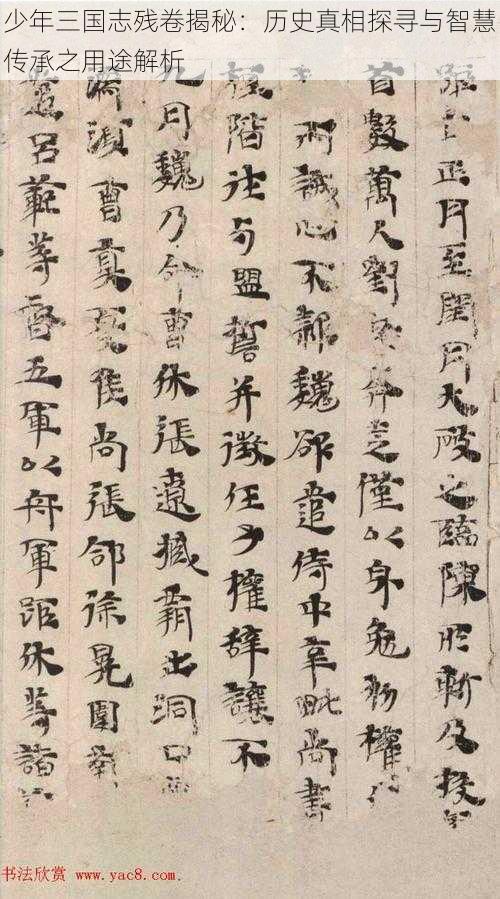 少年三国志残卷揭秘：历史真相探寻与智慧
传承之用途解析
正月至閏月大破之臨陳所斬及投
首數萬人劉備奔走僅以身免初權
而誠心不款魏欲遣侍中辛毗尚書
桓階往与盟誓并徵任子權辭讓不
九月魏乃命曹休張遼臧霸出洞口
濡須曹真夏侯尚張郃徐晃圍南
遣呂範等督五軍以舟軍距休等諸
书法欣赏 www.yac8.com